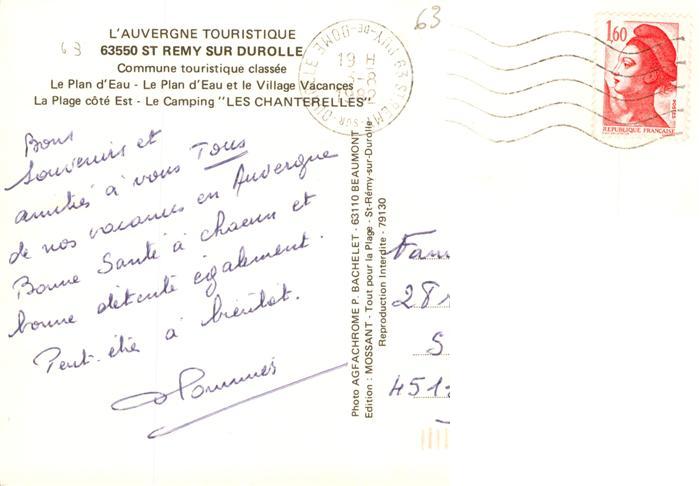 63
63
L'AUVERGNE TOURISTIQUE
63550 ST REMY SUR DUROLLE
Commune touristique classée
Le Plan d'Eau - Le Plan d'Eau et le Village Vacances
La Plage côté Est - Le Camping "LES CHANTERELLES"
19 H
-8
PUY-DE-DOME
1,60
POSTES
REPUBLIQUE FRANÇAISE
Bons
souvenirs et
amitiés à vous Tous
de nos vacances en Auvergne
Bonne Santé à chacun et
bonne détente également.
Peut-être à bientôt.
Photo AGFACHROME P. BACHELET - 63110 BEAUMONT
Edition : MOSSANT - Tout pour la Plage - St-Rémy-sur-Durolle
Reproduction Interdite - 79130
Fam
28
S
451